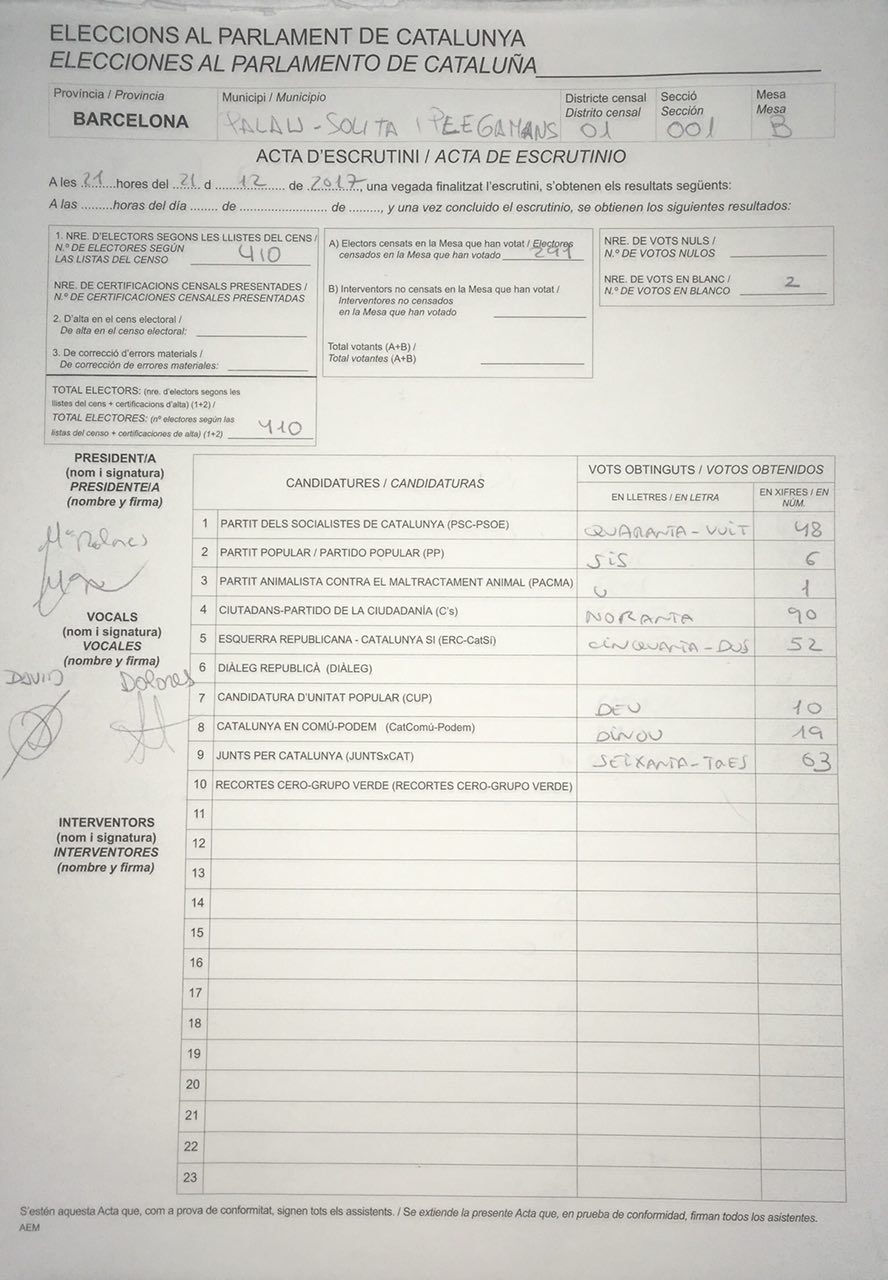 ELECCIONS AL PARLAMENT DE CATALUNYA
ELECCIONES AL PARLAMENTO DE CATALUÑA
Província / Provincia
BARCELONA
Municipi / Municipio
PALAU-SOLITA I PLEGAMANS
Districte censal
Distrito censal
01
Secció
Sección
001
Mesa
Mesa
B
ACTA D'ESCRUTINI / ACTA DE ESCRUTINIO
A les 21 hores del 21 d 12 de 2017, una vegada finalitzat l'escrutini, s'obtenen els resultats següents:
A las .........horas del día ........ de .......................... de ........., y una vez concluido el escrutinio, se obtienen los siguientes resultados:
1. NRE. D'ELECTORS SEGONS LES LLISTES DEL CENS /
N.º DE ELECTORES SEGÚN
LAS LISTAS DEL CENSO 410
NRE. DE CERTIFICACIONS CENSALS PRESENTADES /
N.º DE CERTIFICACIONES CENSALES PRESENTADAS
2. D'alta en el cens electoral /
De alta en el censo electoral:
3. De correcció d'errors materials /
De corrección de errores materiales:
TOTAL ELECTORS: (nre. d'electors segons les
llistes del cens + certificacions d'alta) (1+2) /
TOTAL ELECTORES: (nº electores según las
listas del censo + certificaciones de alta) (1+2) 410
A) Electors censats en la Mesa que han votat / Electores
censados en la Mesa que han votado 291
B) Interventors no censats en la Mesa que han votat /
Interventores no censados
en la Mesa que han votado
Total votants (A+B) /
Total votantes (A+B)
NRE. DE VOTS NULS /
N.º DE VOTOS NULOS
NRE. DE VOTS EN BLANC /
N.º DE VOTOS EN BLANCO 2
PRESIDENT/A
(nom i signatura)
PRESIDENTE/A
(nombre y firma)
Mª Dolores
VOCALS
(nom i signatura)
VOCALES
(nombre y firma)
DAVID
Dolores
INTERVENTORS
(nom i signatura)
INTERVENTORES
(nombre y firma)
CANDIDATURES / CANDIDATURAS
VOTS OBTINGUTS / VOTOS OBTENIDOS
EN LLETRES / EN LETRA
EN XIFRES / EN
NÚM.
1 PARTIT DELS SOCIALISTES DE CATALUNYA (PSC-PSOE) QUARANTA-VUIT 48
2 PARTIT POPULAR / PARTIDO POPULAR (PP) SIS 6
3 PARTIT ANIMALISTA CONTRA EL MALTRACTAMENT ANIMAL (PACMA) U 1
4 CIUTADANS-PARTIDO DE LA CIUDADANÍA (C's) NORANTA 90
5 ESQUERRA REPUBLICANA - CATALUNYA SI (ERC-CatSí) CINQUANTA-DOS 52
6 DIÀLEG REPUBLICÀ (DIÀLEG)
7 CANDIDATURA D'UNITAT POPULAR (CUP) DEU 10
8 CATALUNYA EN COMÚ-PODEM (CatComú-Podem) DINOU 19
9 JUNTS PER CATALUNYA (JUNTSxCAT) SEIXANTA-TRES 63
10 RECORTES CERO-GRUPO VERDE (RECORTES CERO-GRUPO VERDE)
11
12
13
14
15
16
17
18
19
20
21
22
23
S'estén aquesta Acta que, com a prova de conformitat, signen tots els assistents. / Se extiende la presente Acta que, en prueba de conformidad, firman todos los asistentes.
AEM